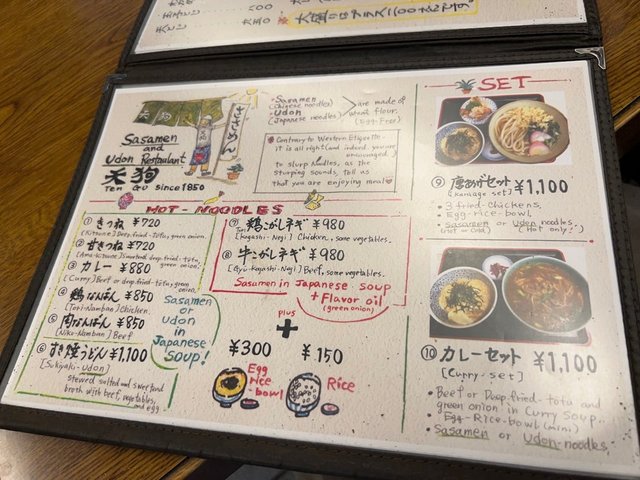 大盛りはプラス200
Sasamen
and
Udon Restaurant
天狗
Ten Gu Since 1850
・Sasamen
(Chinese noodles)
・Udon
(Japanese noodles)
are made of
wheat flour.
(Egg-Free)
Contrary to Western Etiquette
it is all right (and indeed, you're
encouraged)
to slurp Noodles, as the
slurping sounds, tell us
that you are enjoying meal
HOT-NOODLES
① きつね ¥720
[Kitsune] Deep.fried-Tofu, green onion.
② 甘きつね ¥720
[Ama-Kitsune] Sweetend deep.fried-tofu,
green onion
③ カレー ¥880
[Curry] Beef or deep.fried-tofu,
green onion
④ 鶏なんばん ¥850
[Tori-Nanban] Chicken
⑤ 肉なんばん ¥850
[Niku-Nanban] Beef
⑥ すき焼うどん ¥1,100
[Sukiyaki-udon]
stewed salted and sweet and
broth with beef, vegetables,
and egg.
Sasamen
or
udon
in
Japanese
Soup!
⑦ 鶏こがしネギ ¥980
[Kogashi-Negi] Chicken, some vegetables.
⑧ 牛こがしネギ ¥980
[Gyu-Kogashi-Negi] Beef, some vegetables.
Sasamen in Japanese soup
+ Flavor oil
(green onion)
plus
+
¥300
Egg
rice
-bowl
¥150
Rice
SET
⑨ 唐あげセット ¥1,100
[Karaage set]
・3 fried-chickens,
Egg-rice-bowl,
・Sasamen or Udon noodles
(Hot or Cold) (Hot only!)
⑩ カレーセット ¥1,100
[Curry-set]
・Beef or Deep.fried-tofu and
green onion in Curry Soup.
・Egg-Rice-bowl (mini)
・Sasamen or Udon-noodles,